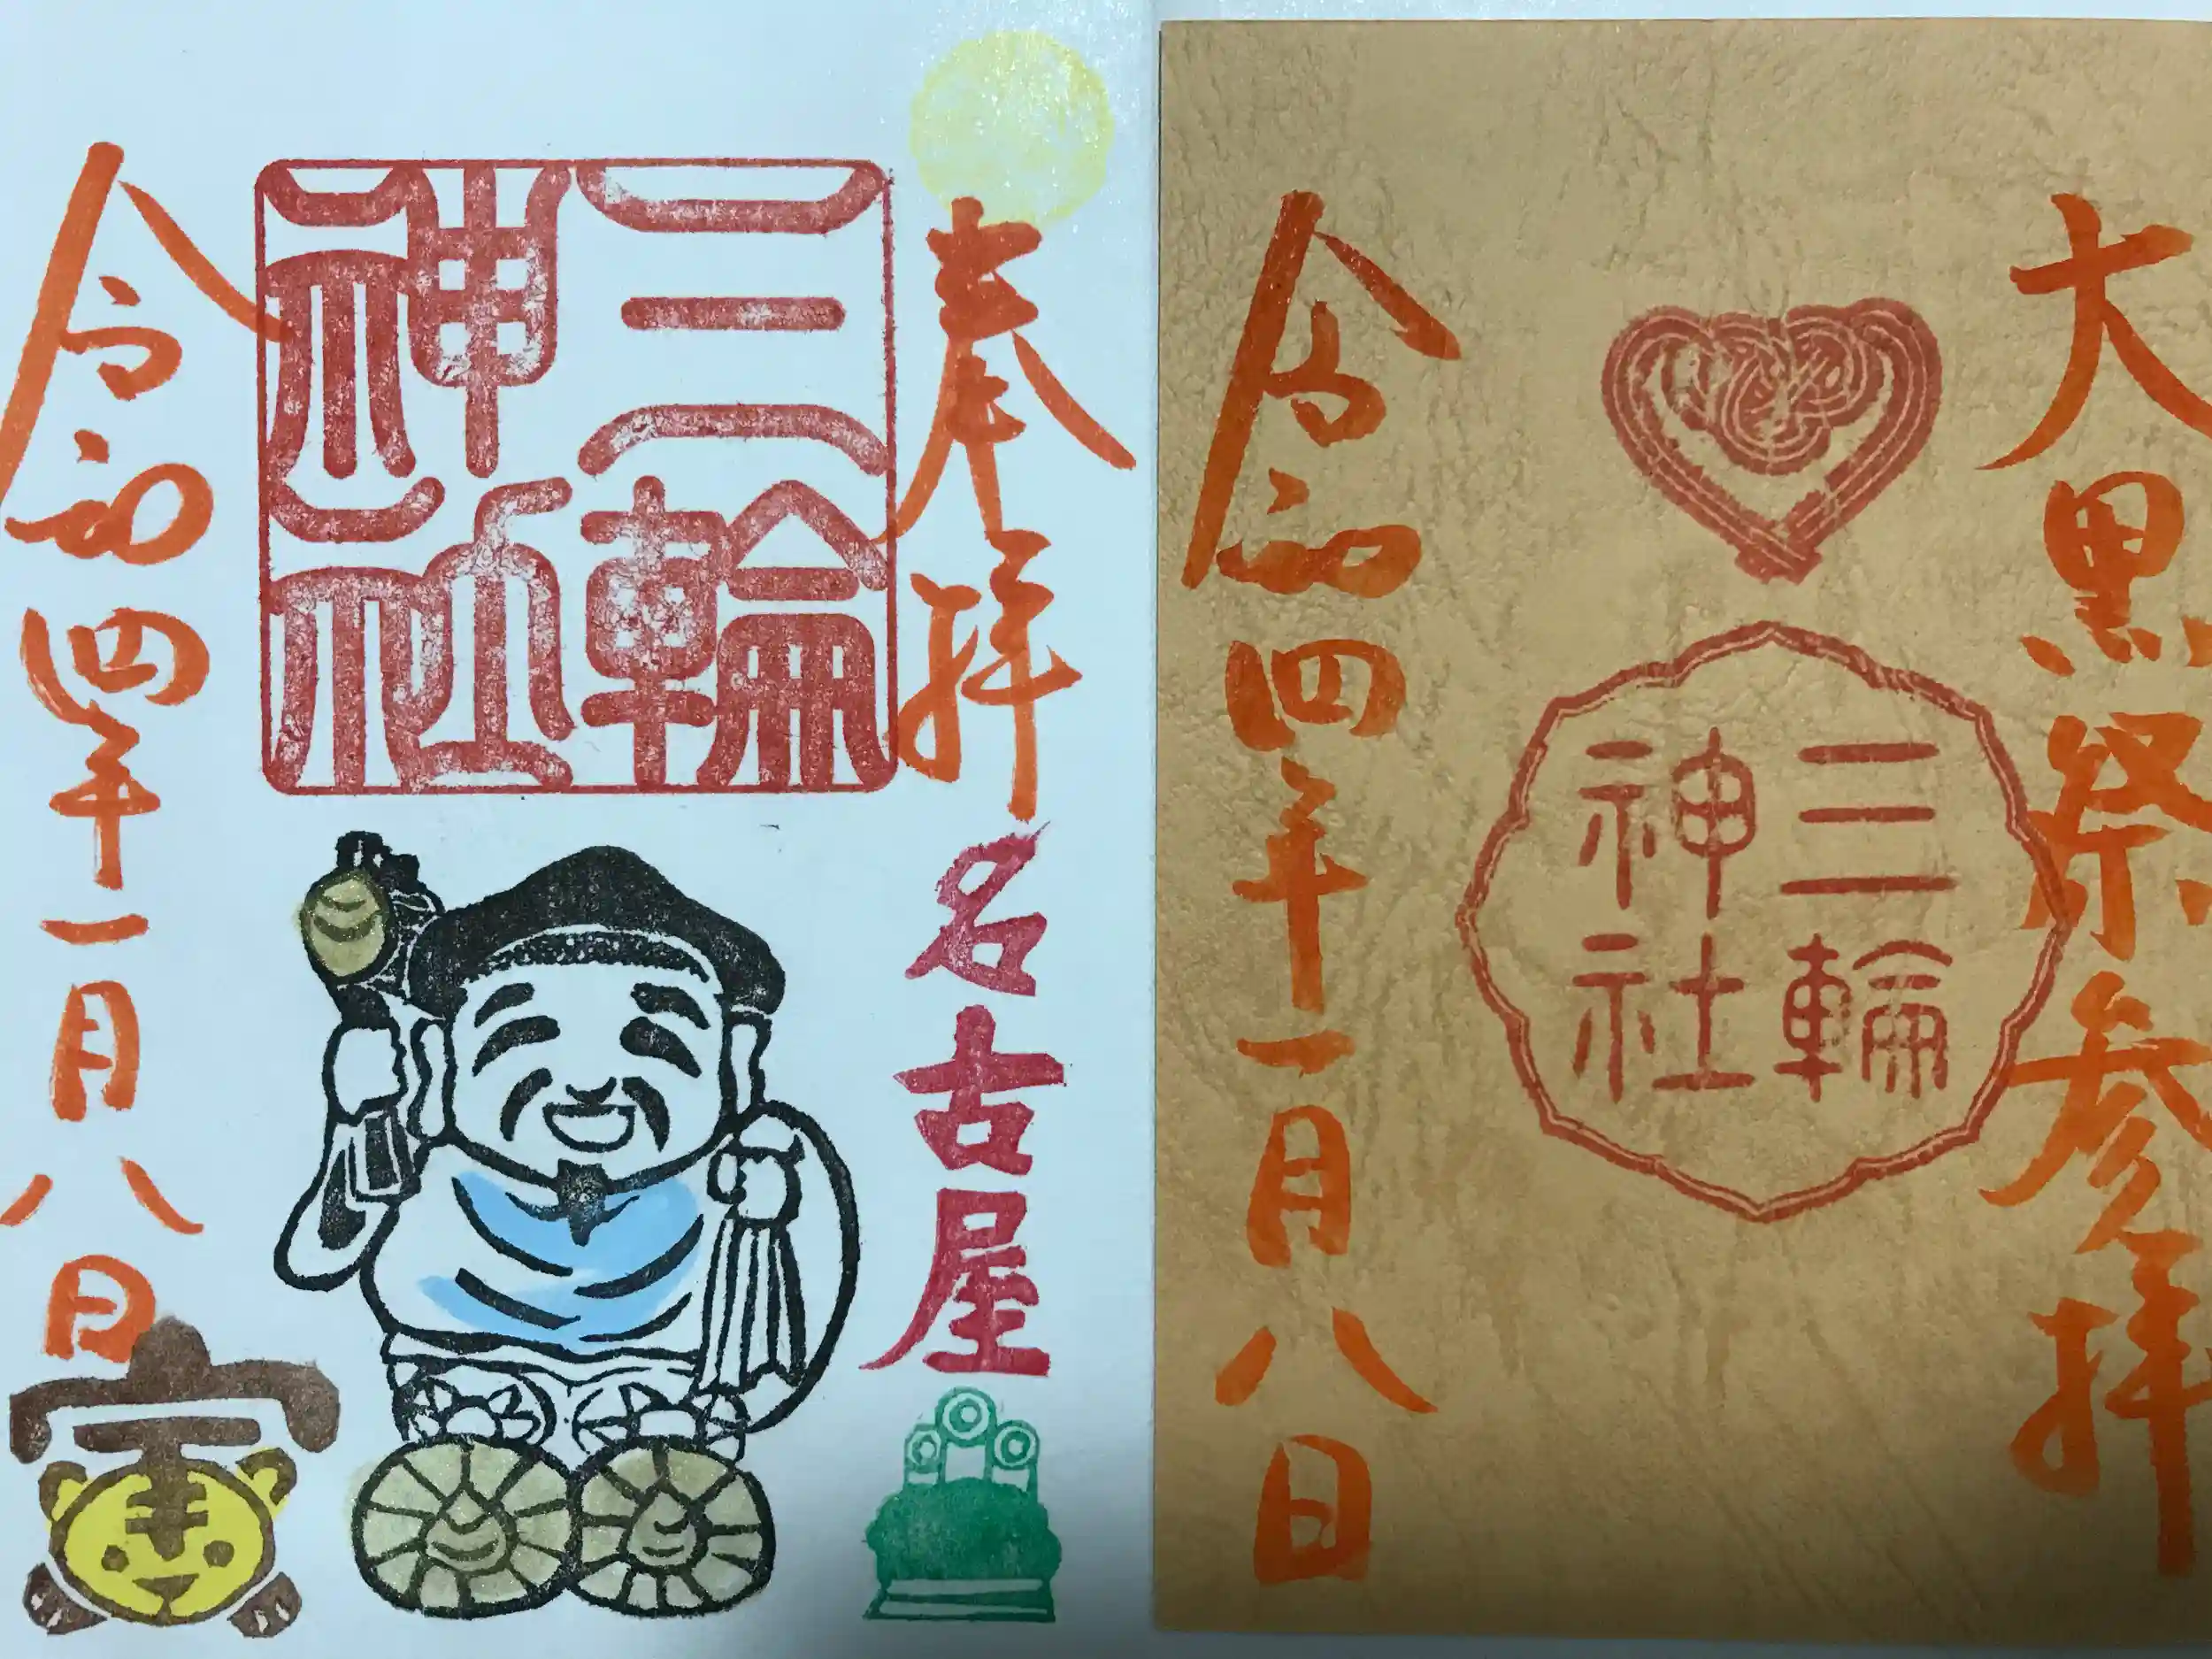 大黒祭参拝
三輪
神社
令和四年一月八日
奉拝
名古屋
三輪
神社
令和四年一月八日
寅